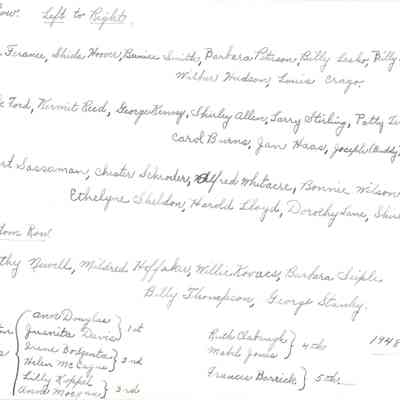 Row. Left to Right.
Ferance, Shiela Hoover, Bunnie Smith, Barbara Peterson, Billy Lesko, Billy
Wilber Hudson, Louis Crago.
Ford, Kermit Reed, George Kenney, Shirley Allen, Larry Stirling, Patty
Carol Burns, Jan Haas, Joseph (Buddy)
Sassaman, Chester Schroder, Alfred Whitacre, Bonnie Wilson
Ethelyne Sheldon, Harold Lloyd, Dorothy Lane,
Row
Newell, Mildred Hoffaker, Willie Kovacs, Barbara Seiple
Billy Thompson, George Stanley.
Ann Douglas
Juanita Davis } 1st
Irene Bodzenta
Helen McCague } 2nd
Lilly Koppel
Anna Morgan } 3rd
Ruth Clabaugh
Mabel Jones } 4th
Francis Barrick } 5th
1948